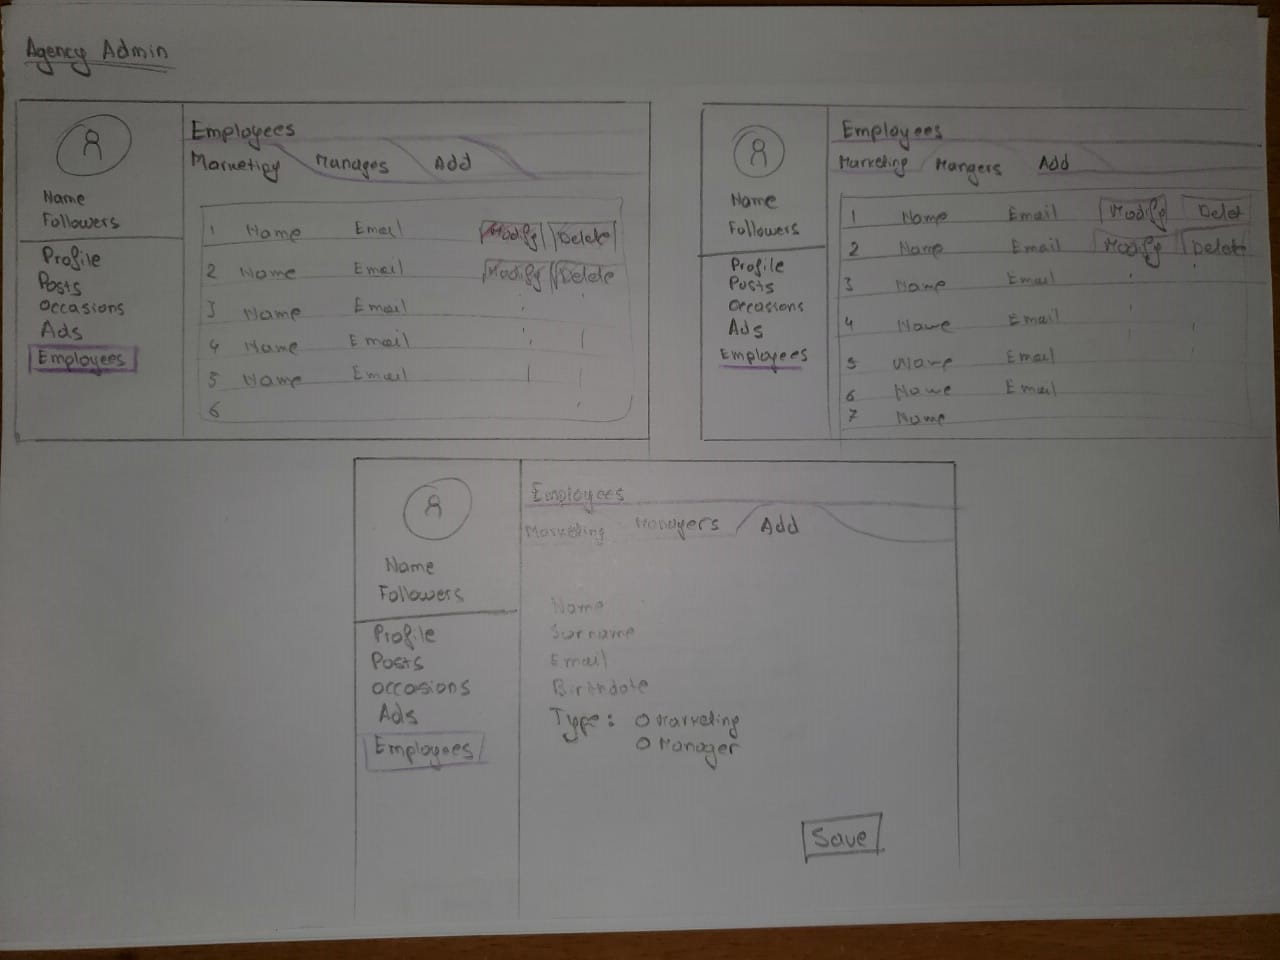 Agency Admin
Name
Followers
Profile
Posts
Occasions
Ads
Employees
Employees
Marketipy Manages Add
1 Name Email Modify Delete
2 Name Email Modify Delete
3 Name Email
4 Name Email
5 Name Email
6
Name
Followers
Profile
Posts
Occasions
Ads
Employees
Employees
Marketing Mangers Add
1 Name Email Modify Delet
2 Name Email Modify Delete
3 Name Email
4 Name Email
5 Name Email
6 Name Email
7 Name
Name
Followers
Profile
Posts
Occasions
Ads
Employees
Employees
Marketing Managers Add
Name
Surname
Email
Birthdate
Type: O Marketing
O Manager
Save